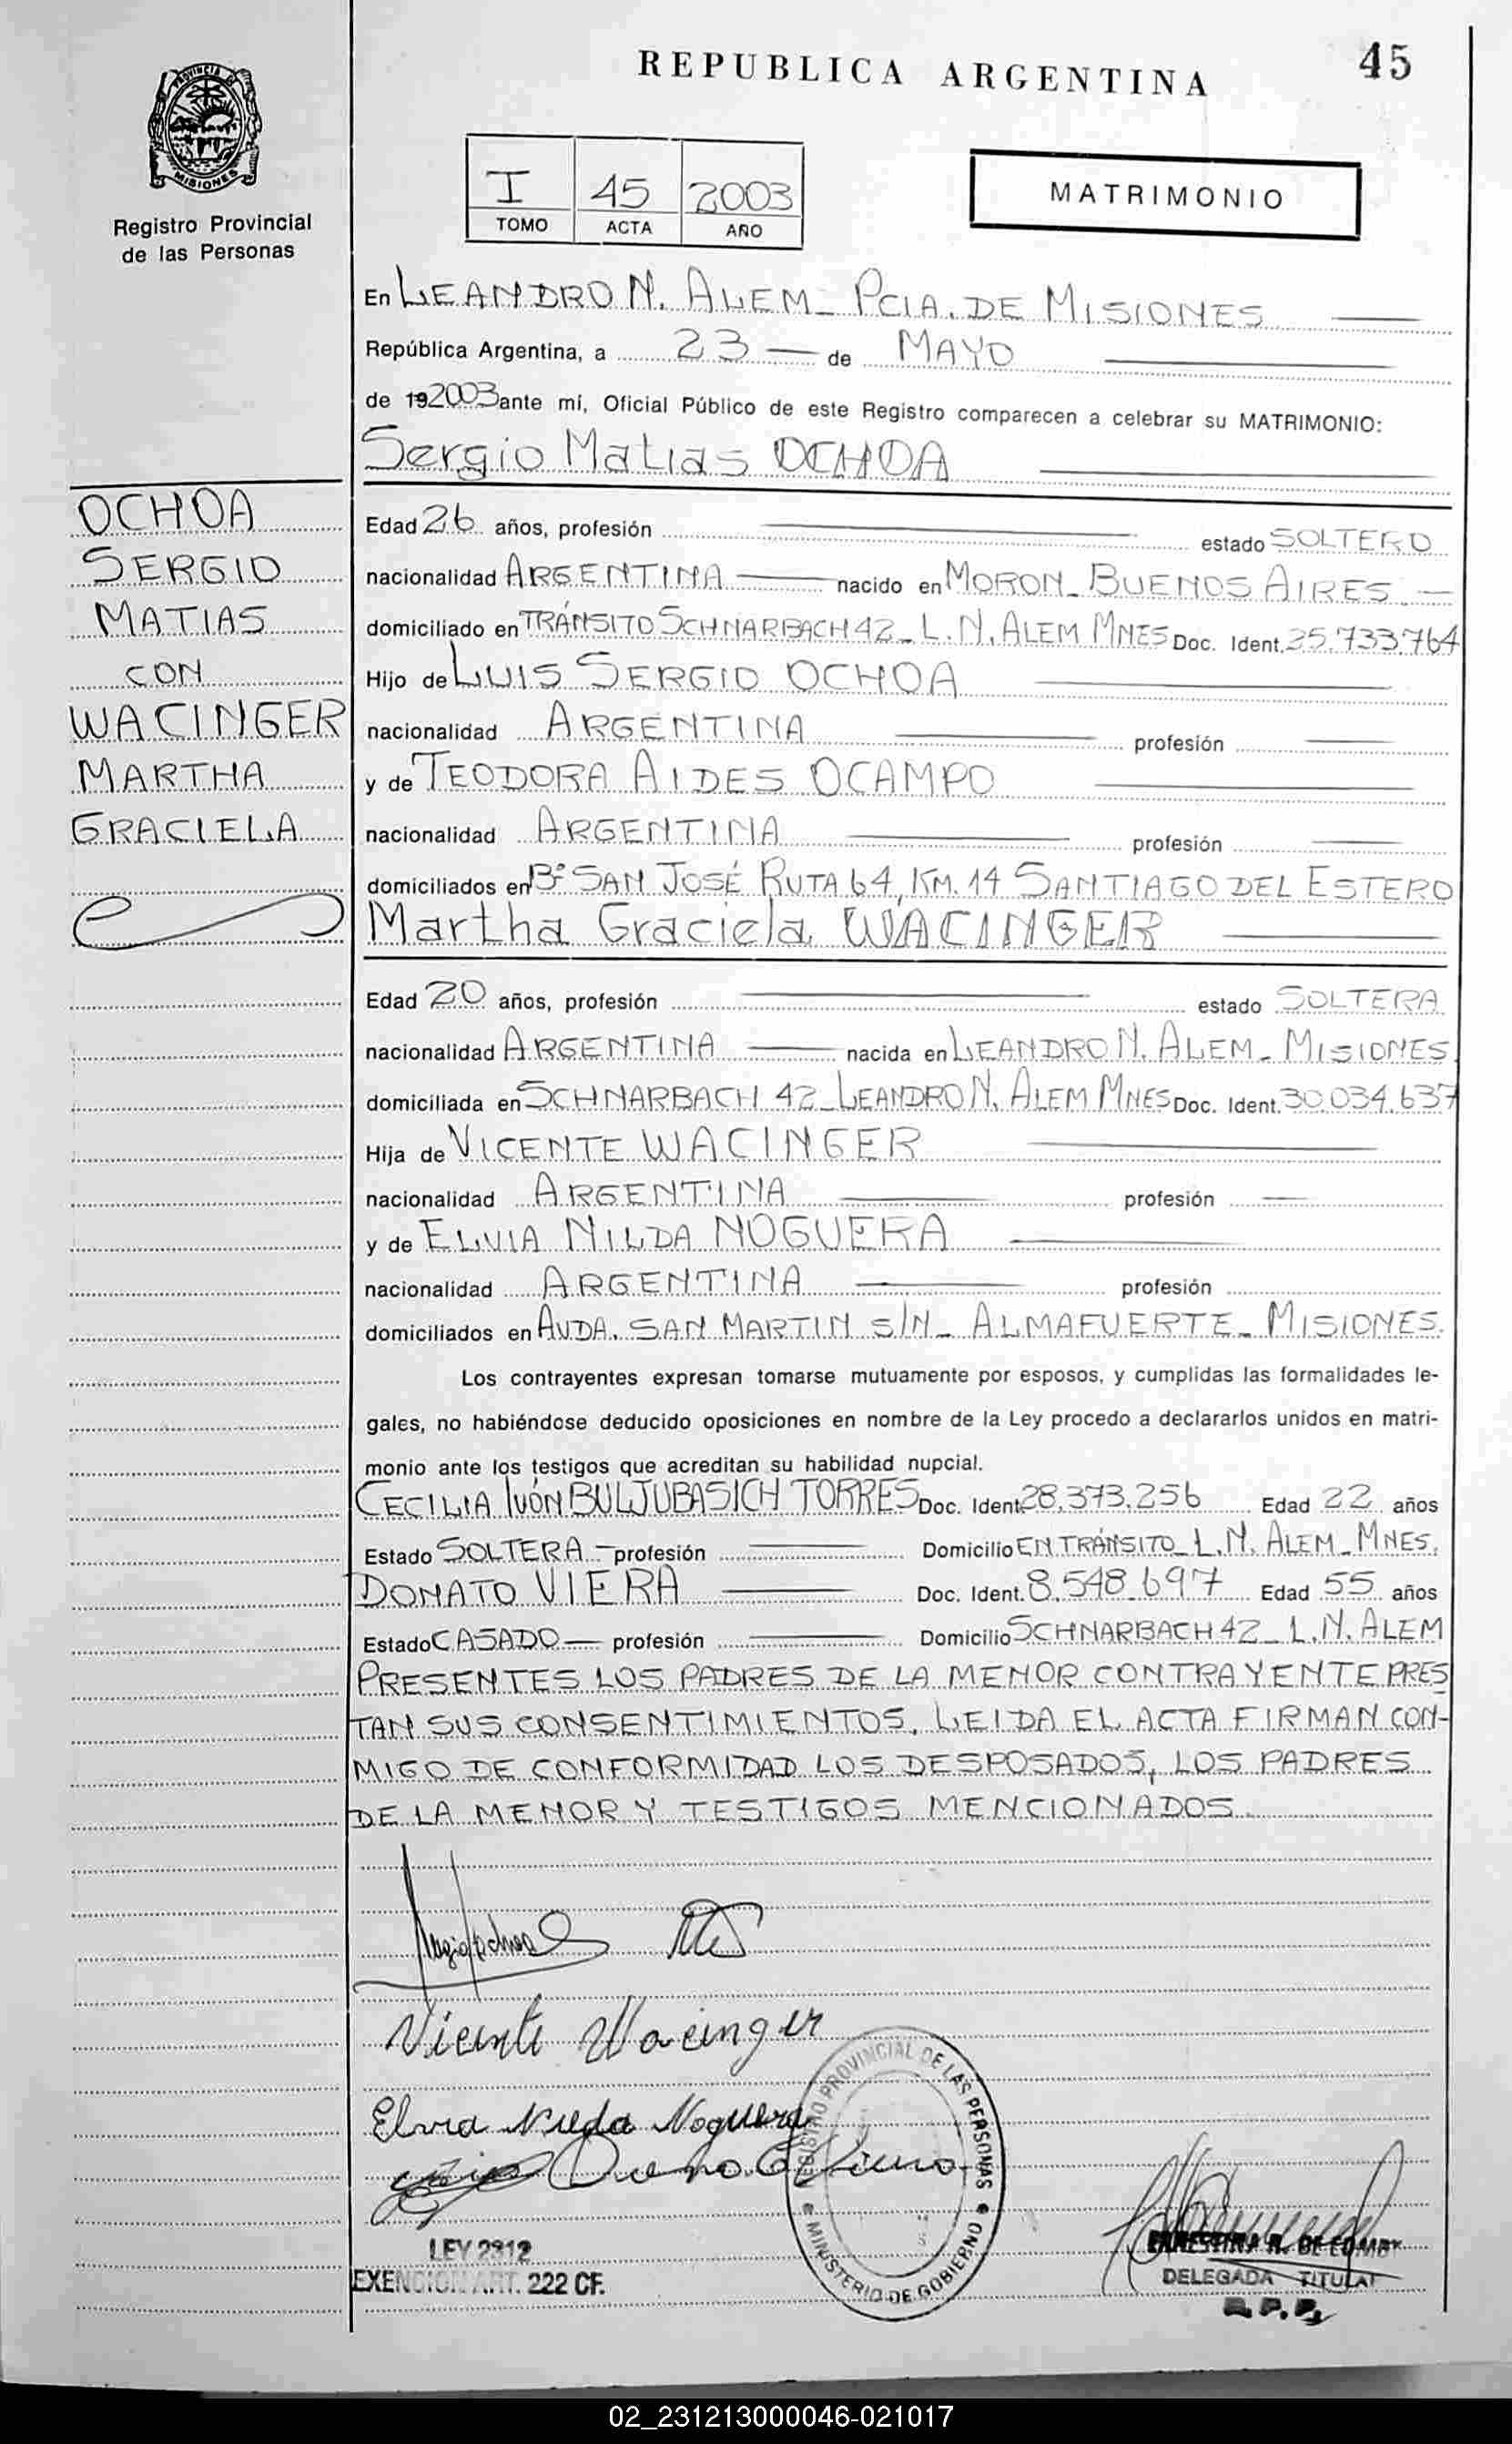 REPUBLICA ARGENTINA
45
PROVINCIA DE
MISIONES
Registro Provincial
de las Personas
I 45 2003
TOMO ACTA AÑO
MATRIMONIO
En LEANDRO N. ALEM_ PCIA. DE MISIONES
República Argentina, a 23 — de MAYO
de 192003 ante mí, Oficial Público de este Registro comparecen a celebrar su MATRIMONIO:
Sergio Matias OCHOA
OCHOA
SERGIO
MATIAS
CON
WACINGER
MARTHA
GRACIELA
Edad 26 años, profesión estado SOLTERO
nacionalidad ARGENTINA — nacido en MORON_ BUENOS AIRES. —
domiciliado en TRÁNSITO SCHNARBACH 42_ L. N. ALEM MNES Doc. Ident. 25.733.764
Hijo de LUIS SERGIO OCHOA
nacionalidad ARGENTINA profesión
y de TEODORA AIDES OCAMPO
nacionalidad ARGENTINA profesión
domiciliados en Bº SAN JOSÉ RUTA 64, KM. 14 SANTIAGO DEL ESTERO
Martha Graciela WACINGER
Edad 20 años, profesión estado SOLTERA
nacionalidad ARGENTINA — nacida en LEANDRO N. ALEM_ MISIONES.
domiciliada en SCHNARBACH 42_ LEANDRO N. ALEM MNES Doc. Ident. 30.034.637
Hija de VICENTE WACINGER
nacionalidad ARGENTINA profesión
y de ELVIA NILDA NOGUERA
nacionalidad ARGENTINA profesión
domiciliados en AVDA. SAN MARTIN S/N_ ALMAFUERTE_ MISIONES.
Los contrayentes expresan tomarse mutuamente por esposos, y cumplidas las formalidades le-
gales, no habiéndose deducido oposiciones en nombre de la Ley procedo a declararlos unidos en matri-
monio ante los testigos que acreditan su habilidad nupcial.
CECILIA IVÓN BULJUBASICH TORRES Doc. Ident. 28.373.256 Edad 22 años
Estado SOLTERA — profesión Domicilio EN TRÁNSITO_ L. N. ALEM_ MNES.
DONATO VIERA Doc. Ident. 8.548.697 Edad 55 años
Estado CASADO — profesión Domicilio SCHNARBACH 42_ L. N. ALEM
PRESENTES LOS PADRES DE LA MENOR CONTRAYENTE PRES
TAN SUS CONSENTIMIENTOS. LEIDA EL ACTA FIRMAN CON-
MIGO DE CONFORMIDAD LOS DESPOSADOS, LOS PADRES
DE LA MENOR Y TESTIGOS MENCIONADOS.
Vicente Wacinger
Elvia Nilda Noguera
REGISTRO PROVINCIAL DE LAS PERSONAS
MINISTERIO DE GOBIERNO
LEY 2312
EXENCION ART. 222 CF.
DELEGADA TITULAR
R. P. P.
02_231213000046-021017